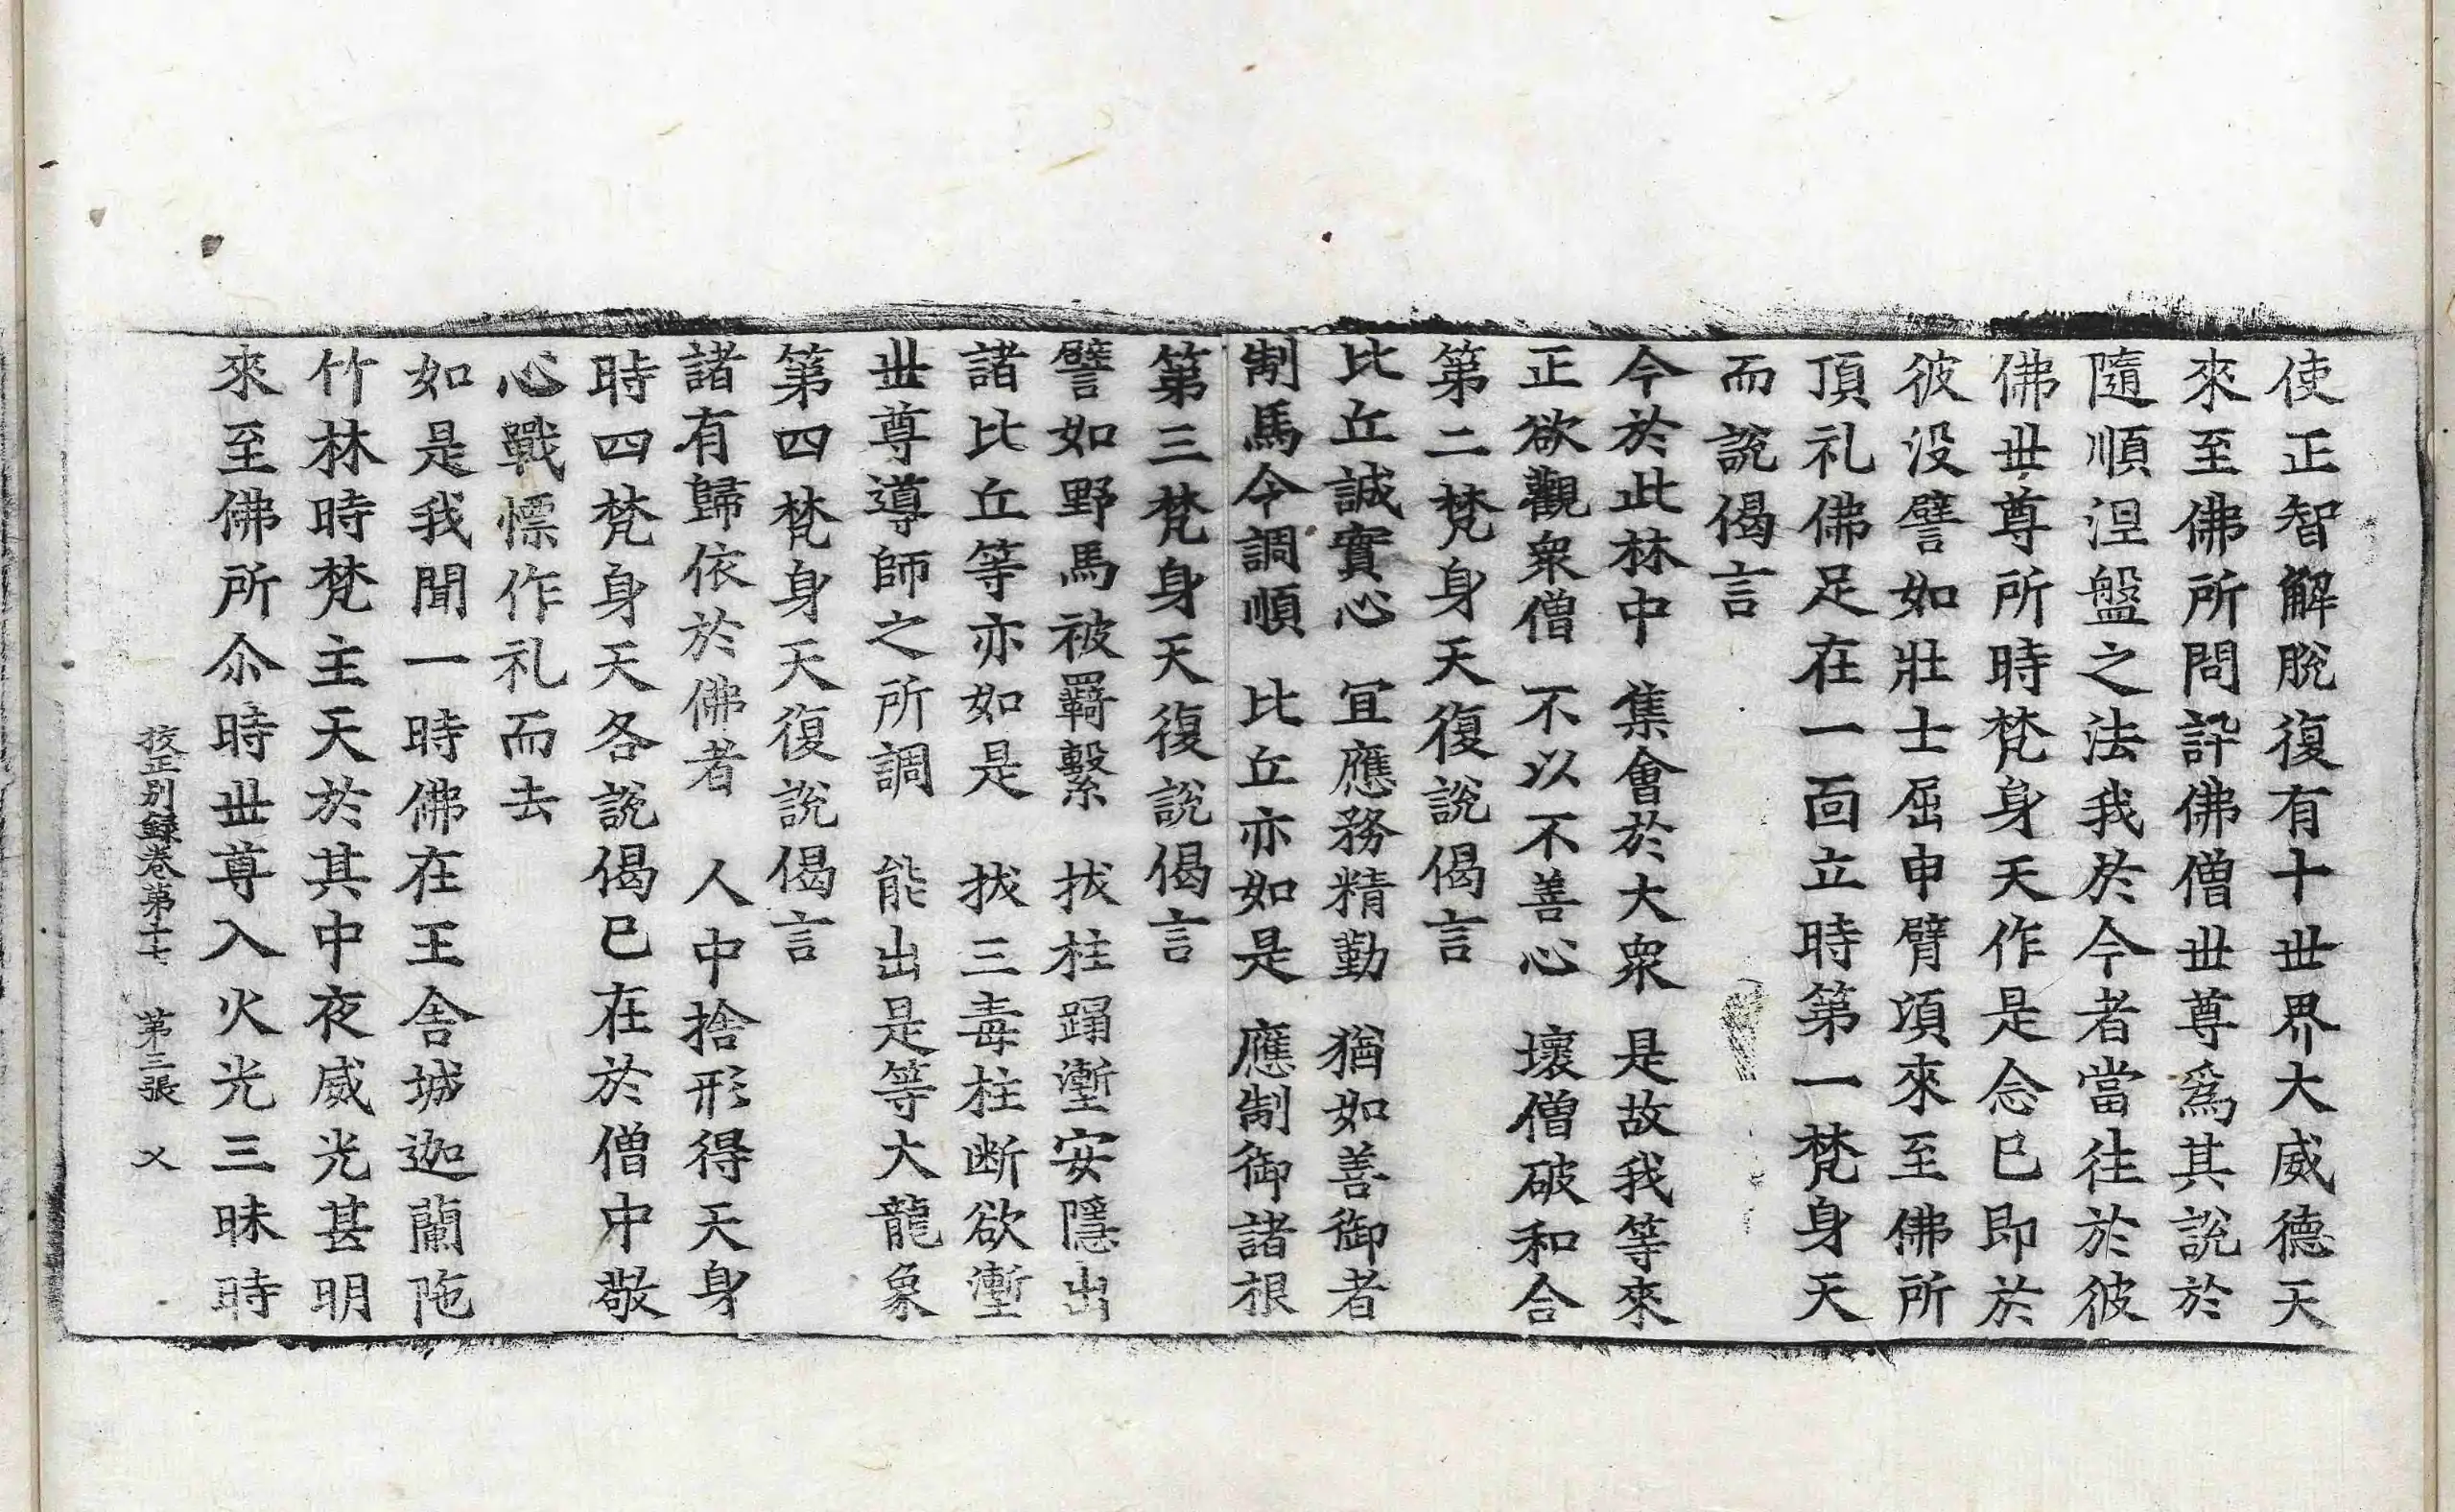 使正智解脫復有十世界大威德天
來至佛所問訊佛僧世尊爲其說於
隨順涅盤之法我於今者當往於彼
佛世尊所時梵身天作是念已即於
彼没譬如壯士屈申臂頃來至佛所
頂礼佛足在一面立時第一梵身天
而說偈言
今於此林中　集會於大衆　是故我等來
正欲觀衆僧　不以不善心　壞僧破和合
第二梵身天復說偈言
比丘誠實心　冝應務精勤　猶如善御者
制馬令調順　比丘亦如是　應制御諸根
第三梵身天復說偈言
譬如野馬被羇繫　拔柱蹋塹安隱出
諸比丘等亦如是　拔三毒柱断欲塹
世尊導師之所調　能出是等大龍象
第四梵身天復說偈言
諸有歸依於佛者　人中捨形得天身
時四梵身天各說偈已在於僧中敬
心戰慓作礼而去
如是我聞一時佛在王舍城迦蘭陁
竹林時梵主天於其中夜威光甚明
來至佛所尒時世尊入火光三昧時
挍正別録卷第十七　第三張　乂